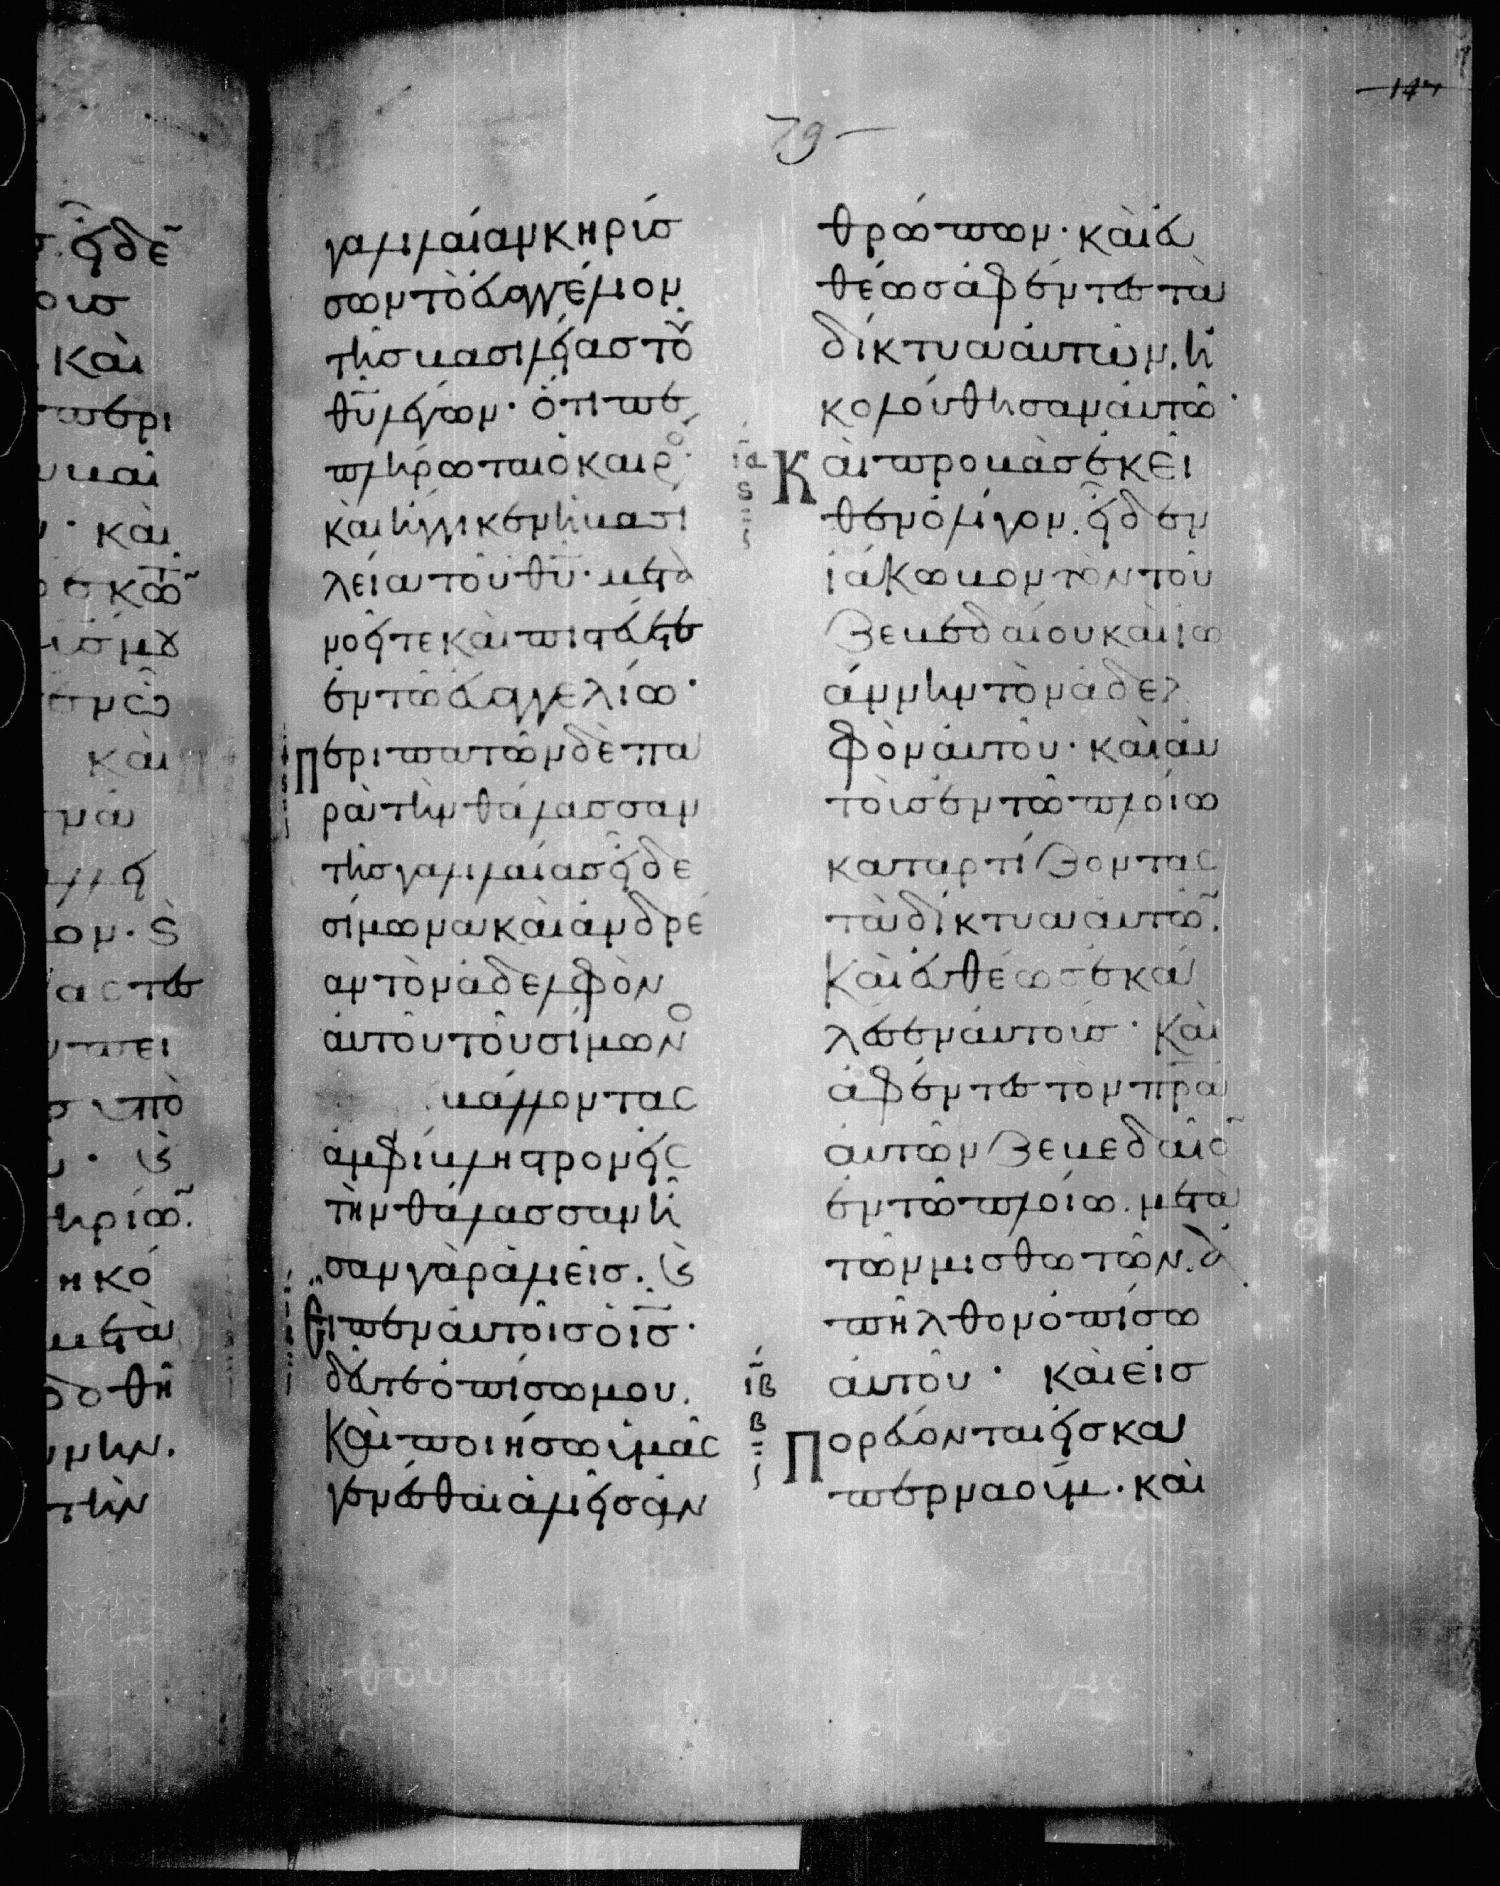 79
147
γαλιλαίαν κηρύσ
σων τὸ ευαγγέλιον
τῆσ βασιλείασ τοῦ
θυ λέγων· ὅτι πε
πλήρωται ὁ καιρος
καὶ ἤγγικεν ἡ βασι
λεία τοῦ θυ· μετα
νοεῖτε καὶ πιστεύετε
ἐν τῶ ευαγγελίω·
Περιπατῶν δὲ πα
ρὰ τὴν θάλασσαν
τῆσ γαλιλαίασ εἶδε
σίμωνα καὶ ἀνδρέ
αν τὸν ἀδελφὸν
ἀυτοῦ τοῦ σίμωνο
βάλλοντας
ἀμφίβληστρον εἰς
τὴν θάλασσαν ἦ
σαν γὰρ ἁλιεῖσ. κ
Εἶπεν ἀυτοῖσ ὁ ισ·
δεῦτε ὀπίσω μου.
Καὶ ποιήσω ὑμᾶς
γενέσθαι ἁλιεῖσ ἀν
θρώπων· καὶ εὐ
θέωσ ἀφέντεσ τὰ
δίκτυα ἀυτῶν. ἠ
κολούθησαν ἀυτῶ·
ια
ς
Καὶ προβὰσ ἐκεῖ
θεν ὀλίγον. εἶδεν
ἰάκωβον τὸν τοῦ
ζεβεδαίου καὶ ἰω
άννην τὸν ἀδελ
φὸν ἀυτοῦ· καὶ ἀυ
τοὺσ ἐν τῶ πλοίω
καταρτίζοντας
τὰ δίκτυα ἀυτῶ.
Καὶ ἐυθέωσ ἐκά
λεσεν ἀυτούσ· Καὶ
ἀφέντεσ τὸν πρα
ἀυτῶν ζεβεδαῖο
ἐν τῶ πλοίω. μετὰ
τῶν μισθωτῶν. ἀ
πῆλθον ὀπίσω
ἀυτοῦ· καὶ εἰσ
ιβ
β
Πορεύονται εἰσ κα
περναούμ· καὶ